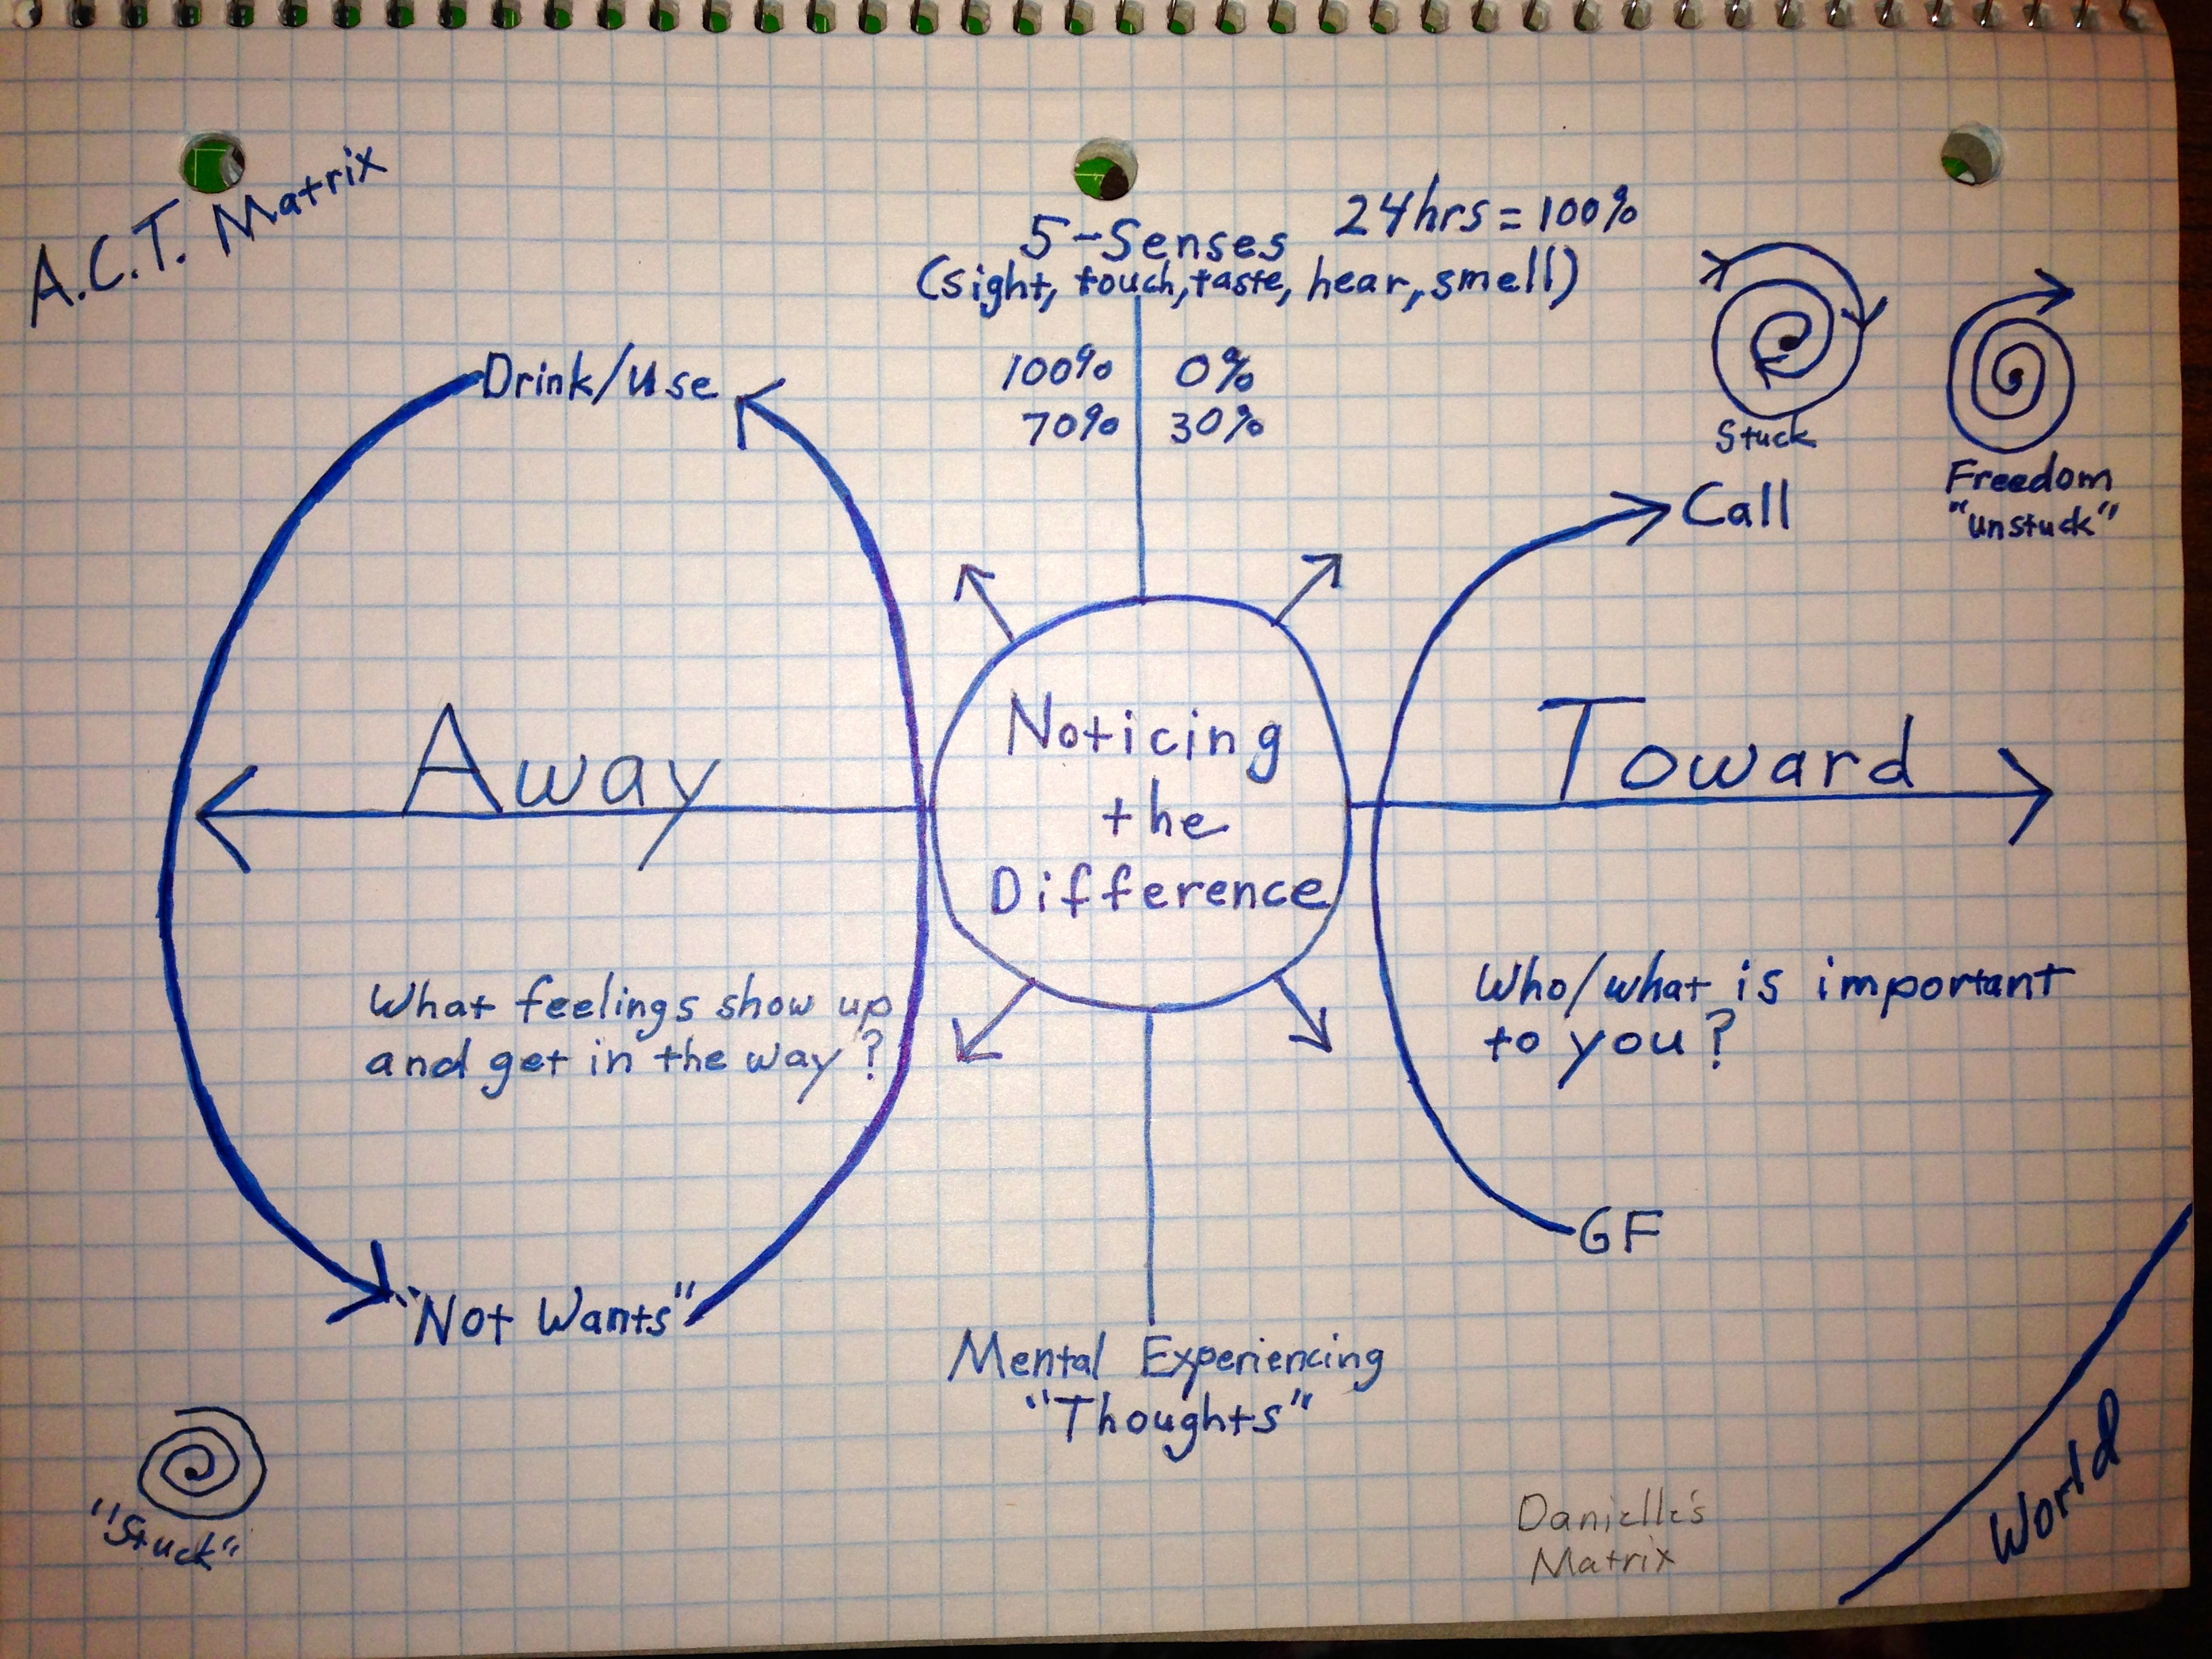 A.C.T. Matrix
5-Senses
24hrs = 100%
(sight, touch, taste, hear, smell)
100% 0%
70% 30%
Drink/Use
Stuck
Freedom
"unstuck"
Call
Away
Noticing
the
Difference
Toward
What feelings show up
and get in the way?
Who/what is important
to you?
GF
"Not Wants"
Mental Experiencing
"Thoughts"
"Stuck"
Danielle's
Matrix
World